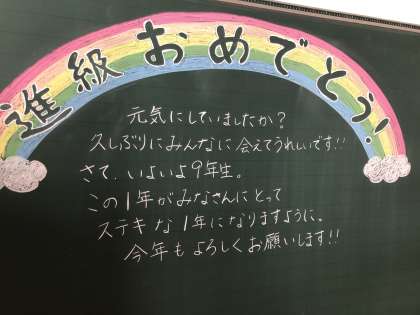 進級おめでとう!
元気にしていましたか?
久しぶりにみんなに会えてうれしいです!!
さて、いよいよ9年生。
この1年がみなさんにとって
ステキな1年になりますように。
今年もよろしくお願いします!!